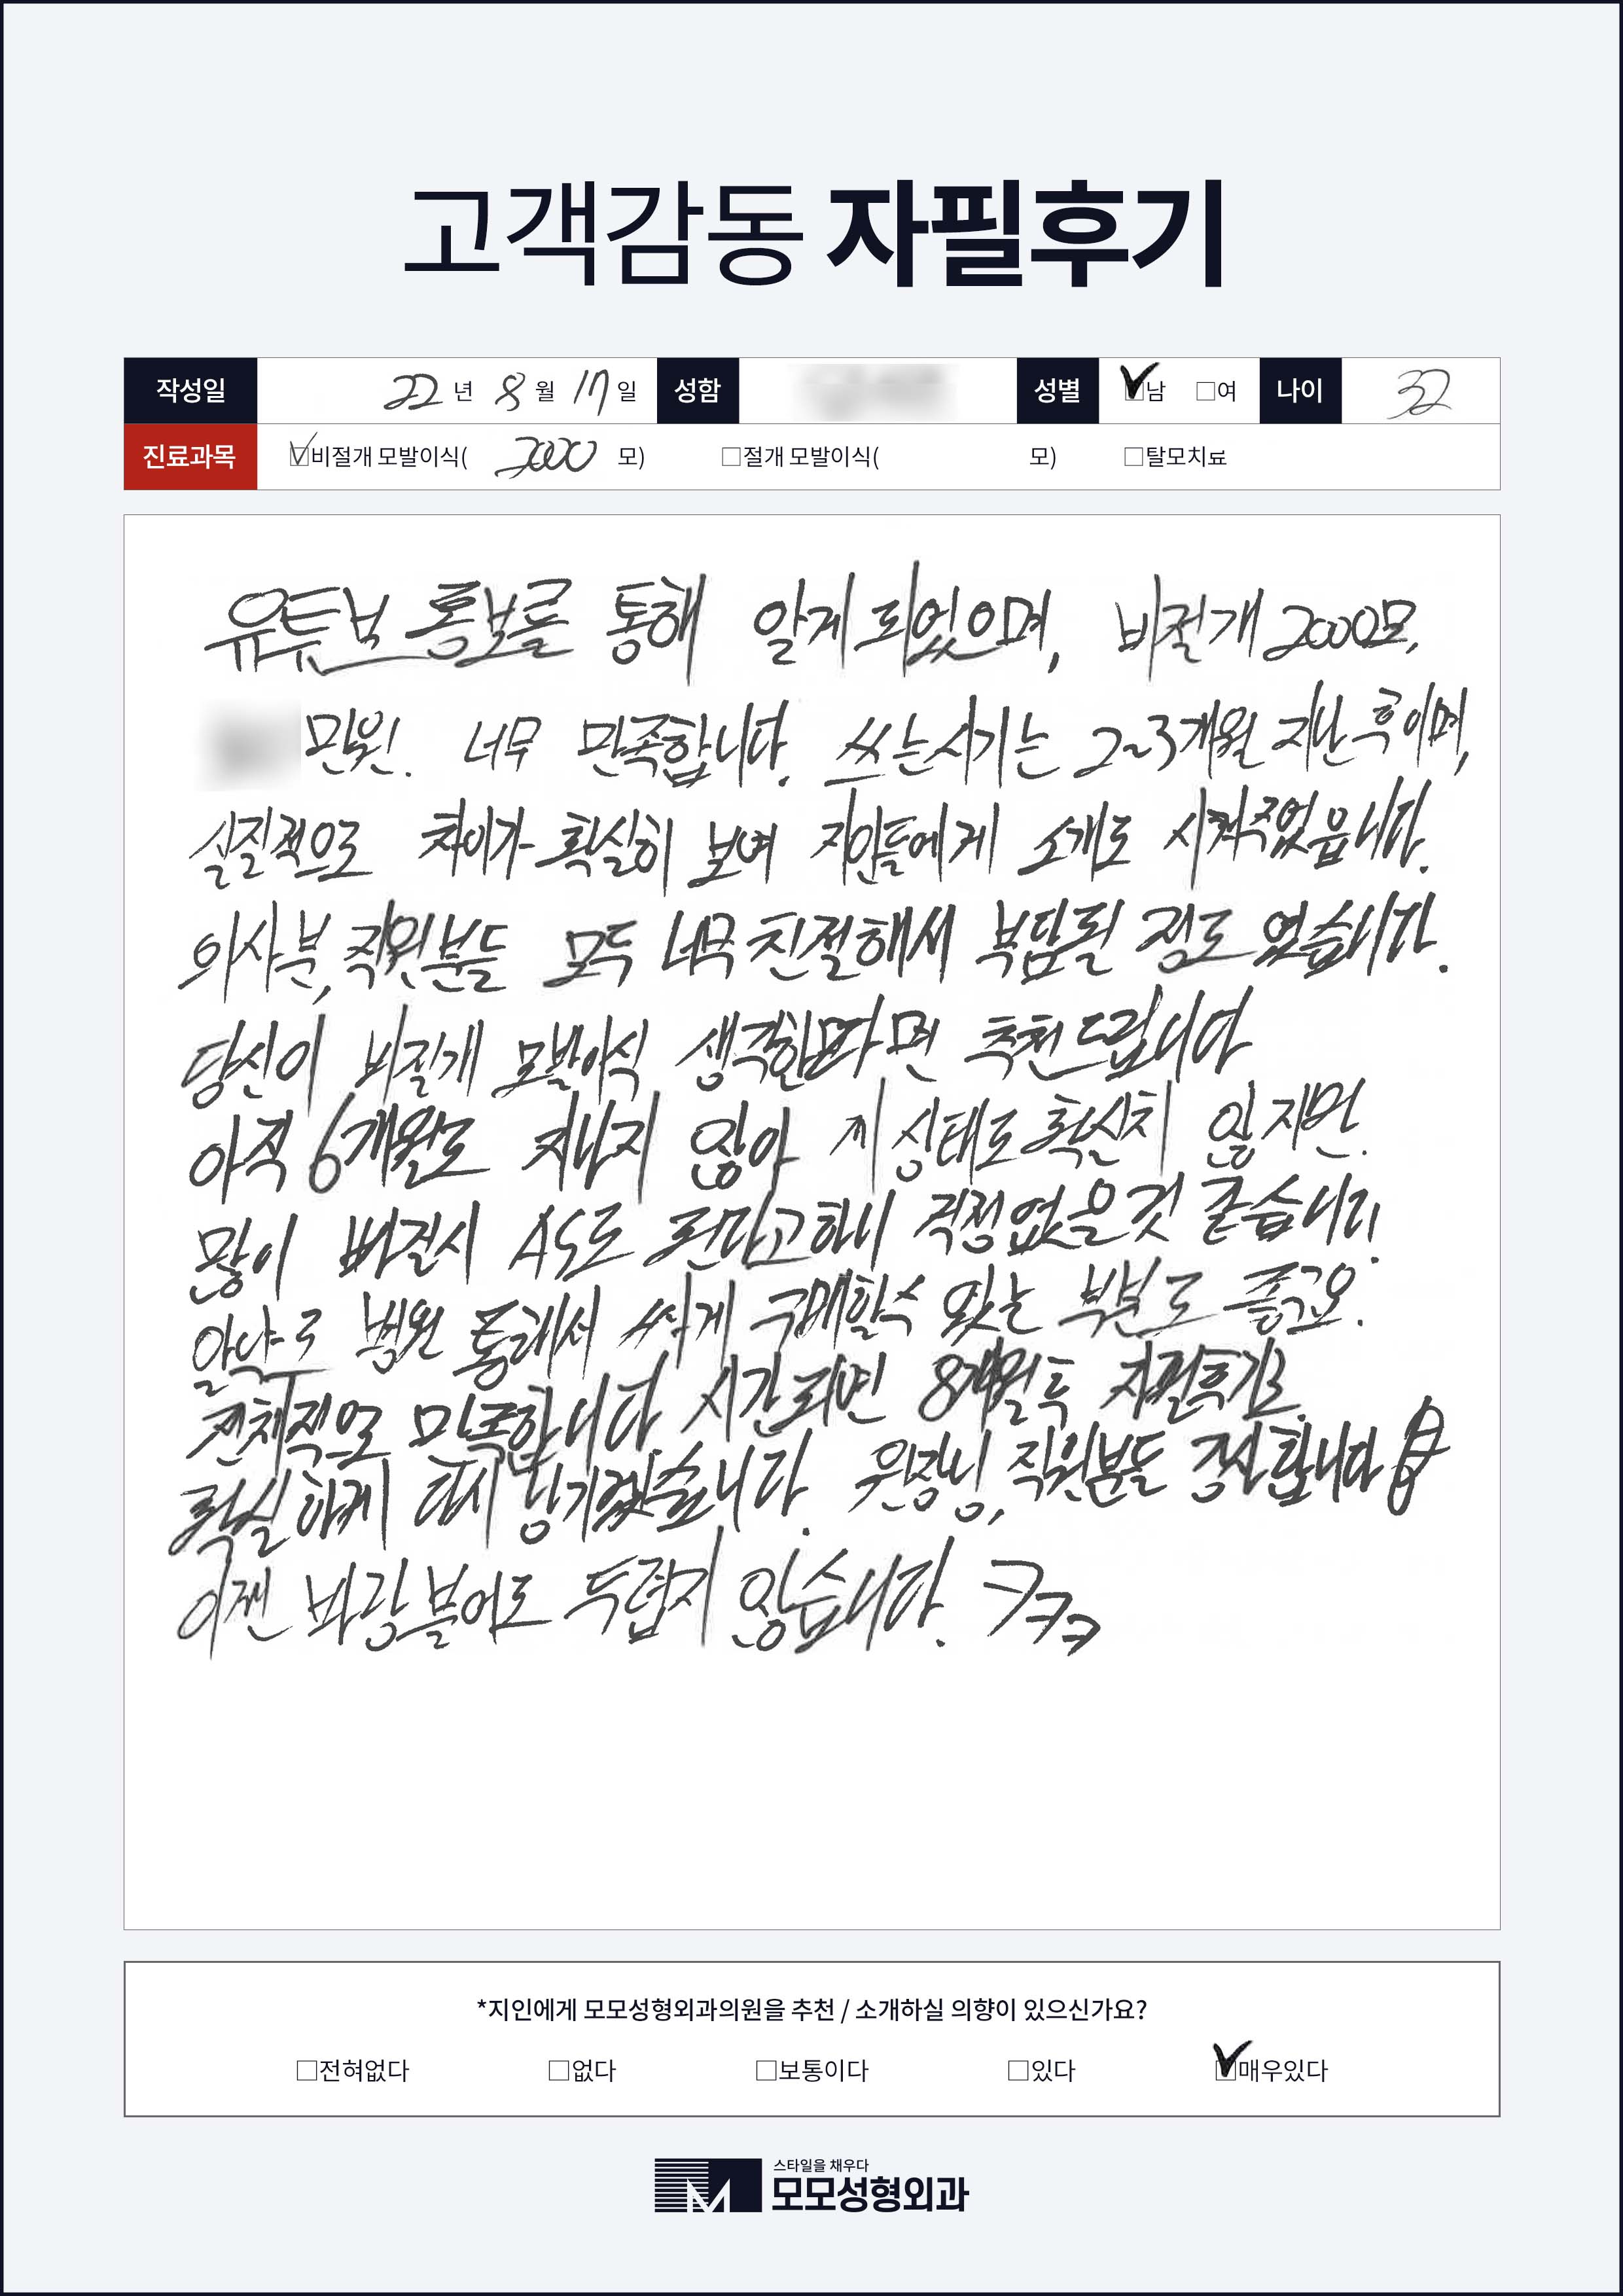 고객감동 자필후기
작성일 22 년 8 월 17 일 성함 성별 ☑남 □여 나이 32
진료과목 ☑비절개 모발이식( 2000 모) □절개 모발이식( 모) □탈모치료
유튜브 홍보를 통해 알게 되었으며, 비절개 2000모,
만원. 너무 만족합니다. 쓰는시기는 2~3개월 지난 후이며,
실질적으로 차이가 확실히 보여 지인들에게 소개도 시켜주었읍니다.
의사분, 직원분들 모두 너무 친절해서 부담될 정도 였습니다.
당신이 비절개 모발이식 생각한다면 추천드립니다
아직 6개월도 지나지 않아 상태도 확실치 않지만.
많이 빠질시 AS도 된다고하니 걱정없을것 같습니다.
알약도 병원 통해서 싸게 구매할수 있는 부분도 좋구요.
전체적으로 만족합니다 시간되면 8개월후 자필후기로
확실하게 다시 남기겠습니다. 원장님, 직원분들 감사합니다
이젠 바람불어도 두렵지 않습니다. ㅋㅋㅋ
*지인에게 모모성형외과의원을 추천 / 소개하실 의향이 있으신가요?
□전혀없다 □없다 □보통이다 □있다 ☑매우있다
스타일을 채우다
모모성형외과